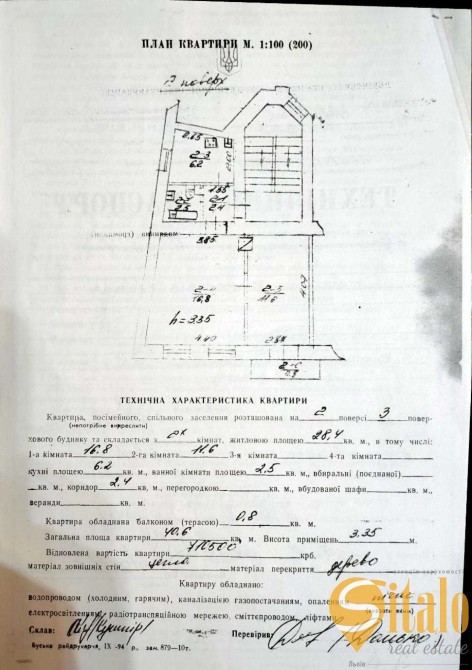 ПЛАН КВАРТИРИ М. 1:100 (200)
2 поверх
2.65
2-3
6.2
1.35
2-2
2.5
2-1
2.4
3.85
2-4
16,8
2-5
11.6
4.07
h=3.35
4.40
2.84
2-6
0.8
ТЕХНІЧНА ХАРАКТЕРИСТИКА КВАРТИРИ
Квартира, посімейного, спільного заселення розташована на 2 поверсі 3 повер-
(непотрібне викреслити)
хового будинку та складається з кімнат, житловою площею 28,4 кв. м., в тому числі:
1-а кімната 16.8 2-га кімната 11.6 3-я кімната 4-та кімната
кухні площею 6.2 кв. м., ванної кімнати площею 2,5 кв. м., вбиральні (поєднаної)
кв. м., коридор 2,4 кв. м., перегородкою кв. м., вбудованої шафи кв. м.,
веранди кв. м.
Квартира обладнана балконом (терасою) 0,8 кв. м.
Загальна площа квартири 40.6 кв. м. Висота приміщень 3.35
Відновлена вартість квартири крб.
матеріал зовнішніх стін цегла матеріал перекриття дерево
Квартиру обладнано:
водопроводом (холодним, гарячим), каналізацією газопостачанням, опаленням
електроосвітленням, радіотрансляційною мережею, сміттєпроводом, ліфтами
Склав: Перевірив:
Буська райдрукарня, ІХ -94 р. зам. 879—10т.
Sitalo
real estate